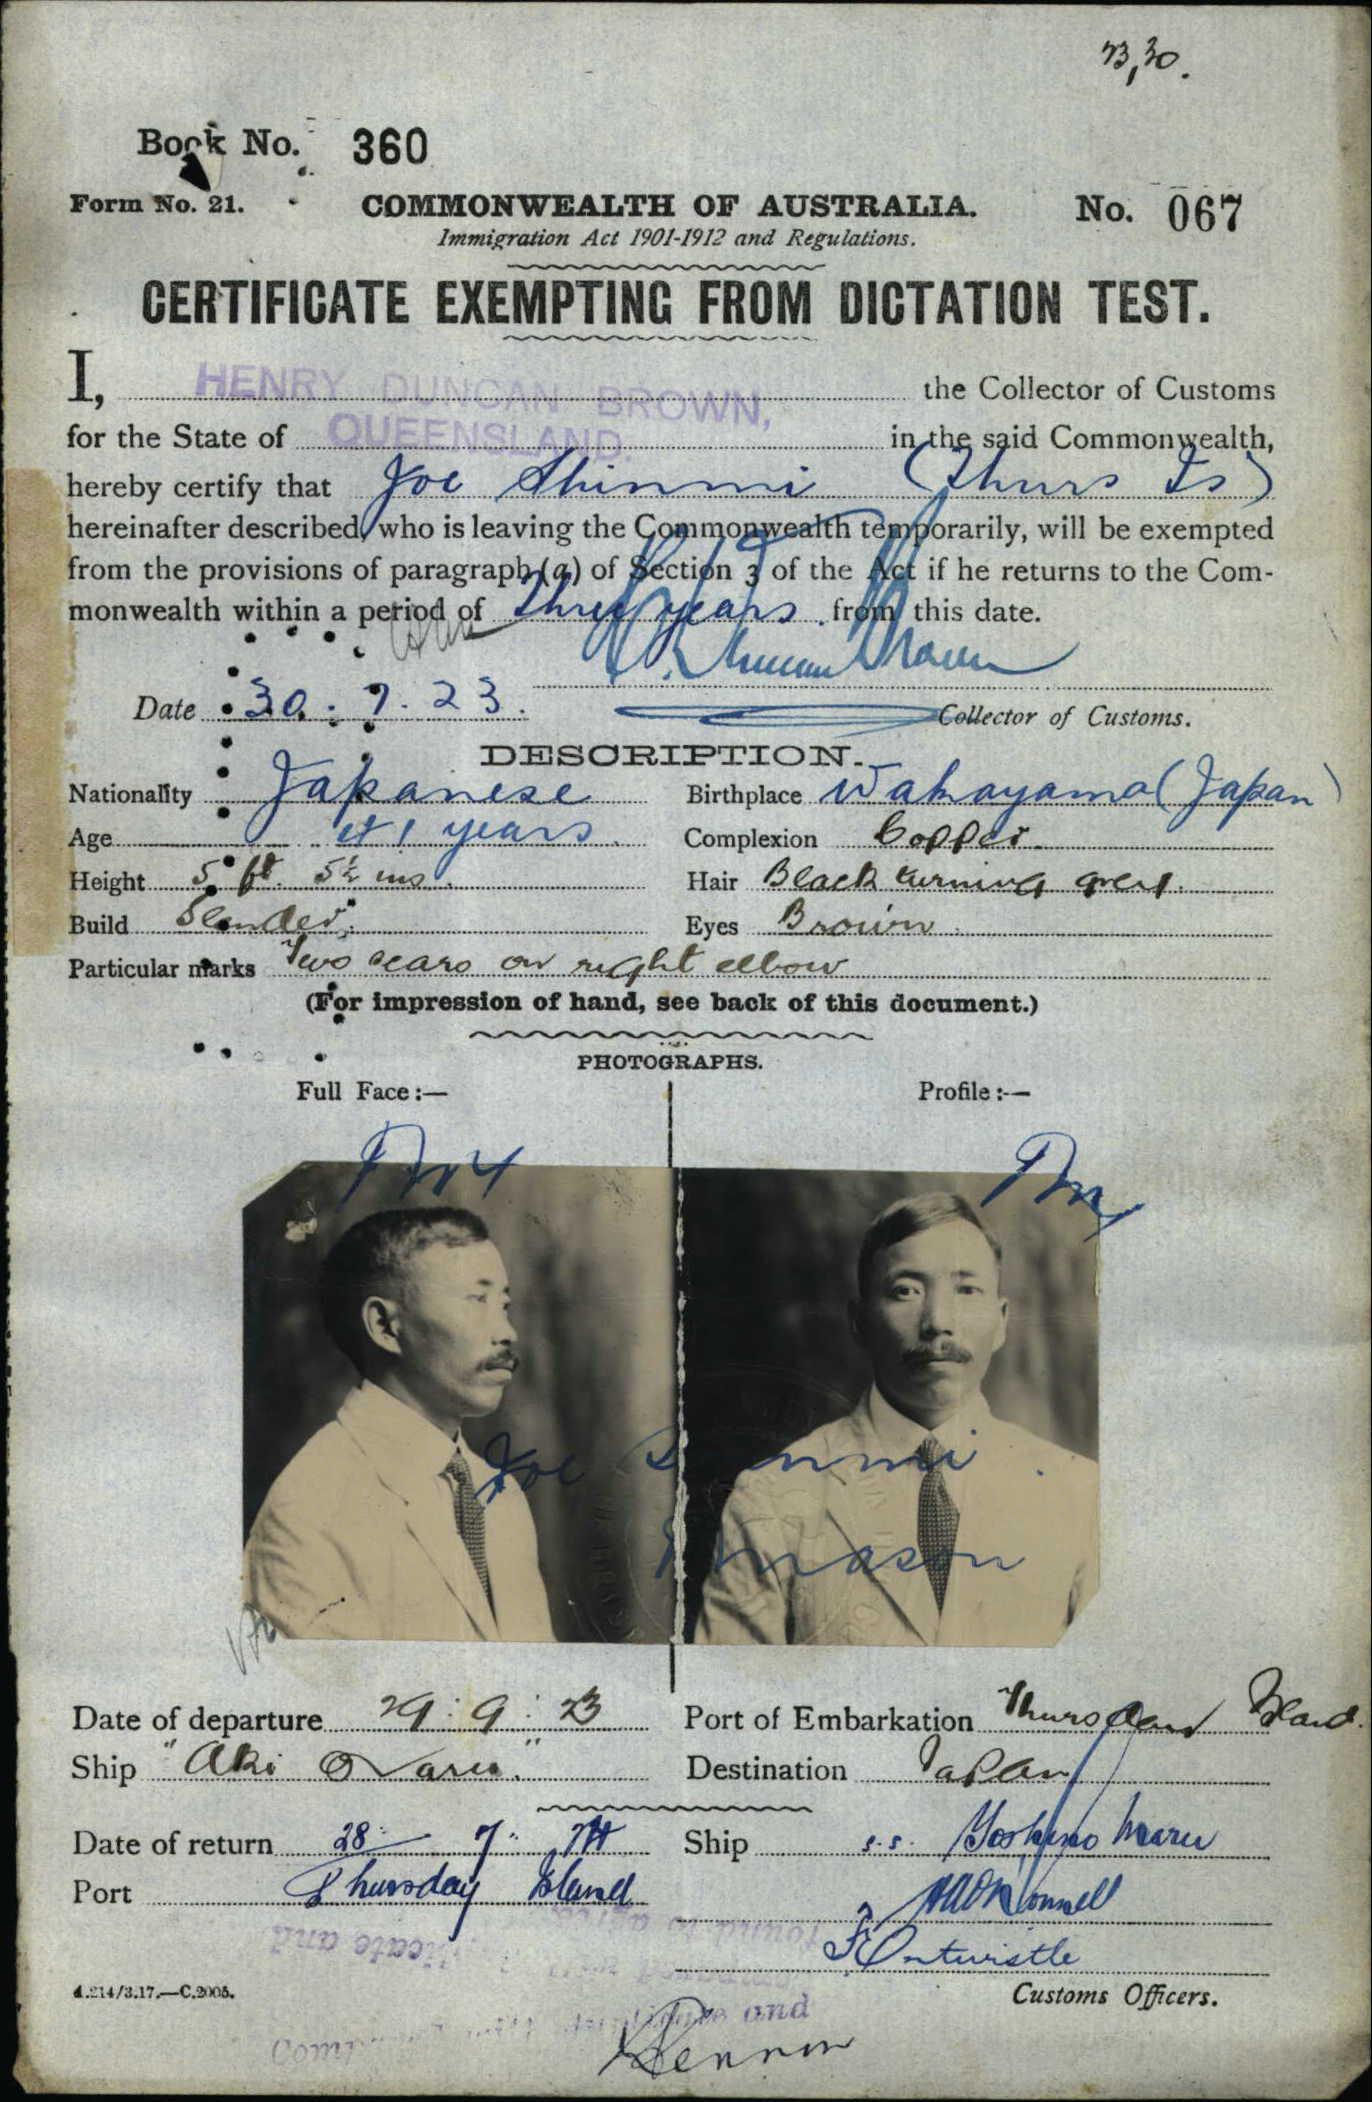 23,30.
Book No. 360
Form No. 21. COMMONWEALTH OF AUSTRALIA. No. 067
Immigration Act 1901-1912 and Regulations.
CERTIFICATE EXEMPTING FROM DICTATION TEST.
I, HENRY DUNCAN BROWN, the Collector of Customs
for the State of QUEENSLAND. in the said Commonwealth,
hereby certify that Joe Shinmi (Thurs Is)
hereinafter described, who is leaving the Commonwealth temporarily, will be exempted
from the provisions of paragraph (a) of Section 3 of the Act if he returns to the Com-
monwealth within a period of Three years from this date.
H. Duncan Brown
Date 30.7.23. Collector of Customs.
DESCRIPTION.
Nationality Japanese Birthplace Wakayama (Japan)
Age 41 years. Complexion Copper.
Height 5 ft. 5½ ins. Hair Black turning grey.
Build Slender. Eyes Brown.
Particular marks Two scars on right elbow
(For impression of hand, see back of this document.)
PHOTOGRAPHS.
Full Face:— Profile:—
Joe Shinmi.
Mason
Date of departure 29:9:23 Port of Embarkation Thursday Island.
Ship "Aki Maru." Destination Japan
Date of return 28 7 24 Ship s.s. Yoshino Maru
Port Thursday Island
F. Entwistle
4.214/3.17.—C.2005. Customs Officers.
found to agree
certificate and
and